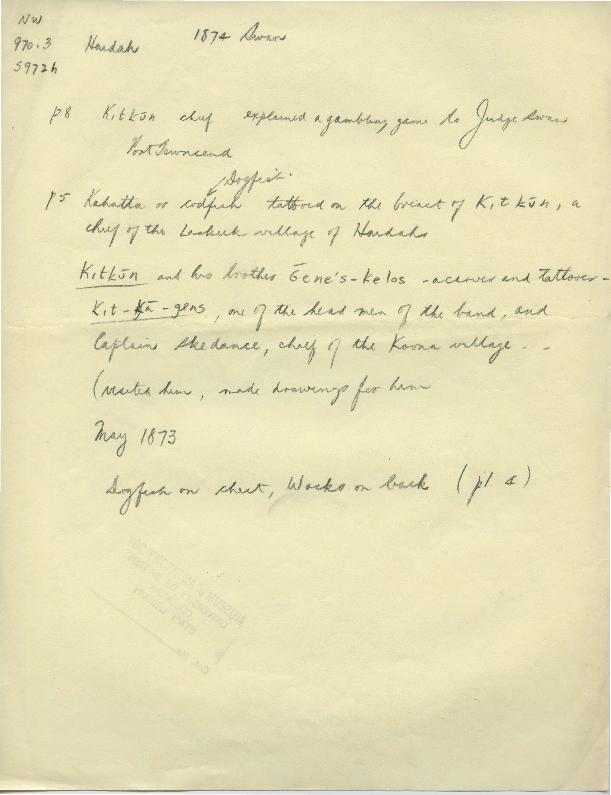 NW
970.3 Haidah 1874 Swan
S972h
p8 Kitkūn chief explained a gambling game to Judge Swan
Port Townsend
Dogfish
p5 Kahatta or codfish tattooed on the breast of Kitkūn, a
chief of the Laskeek village of Haidahs
Kitkūn and his brother Gēne's-kelos - a carver and tattooer -
Kit-kā-gens, one of the head men of the band, and
Captain Skedance, chief of the Koona village - -
(visited him, made drawings for him
May 1873
Dogfish on chest, Wasko on back (pl. 4)